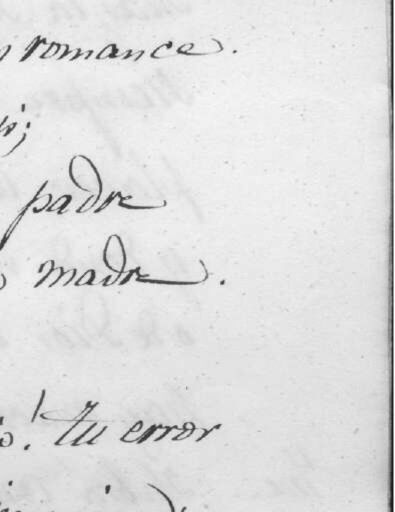 romance.
padre
madre.
! tu error